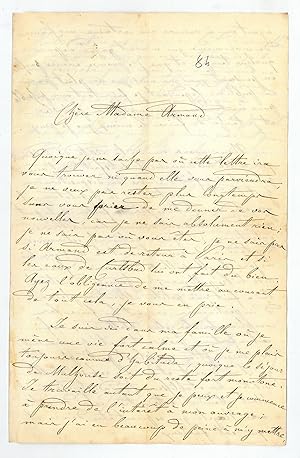 84
Chère Madame Armand
Quoique je ne sache pas où cette lettre ira
vous trouver ni quand elle vous parviendra,
je ne veux pas rester plus longtemps
sans vous prier de me donner de vos
nouvelles, car je ne sais absolument rien,
je ne sais pas où vous êtes, je ne sais pas
si Armand est de retour à Paris et si
les eaux de lui ont fait du bien.
Ayez l'obligeance de me mettre au courant
de tout cela, je vous en prie.
Je suis ici dans ma famille où je
mène une vie fort calme et où je me plais
toujours comme d'habitude, quoique le séjour
de Mulhouse soit du reste fort monotone.
Je travaille autant que je puis et je commence
à prendre de l'intérêt à mon ouvrage;
mais j'ai eu beaucoup de peine à m'y mettre,